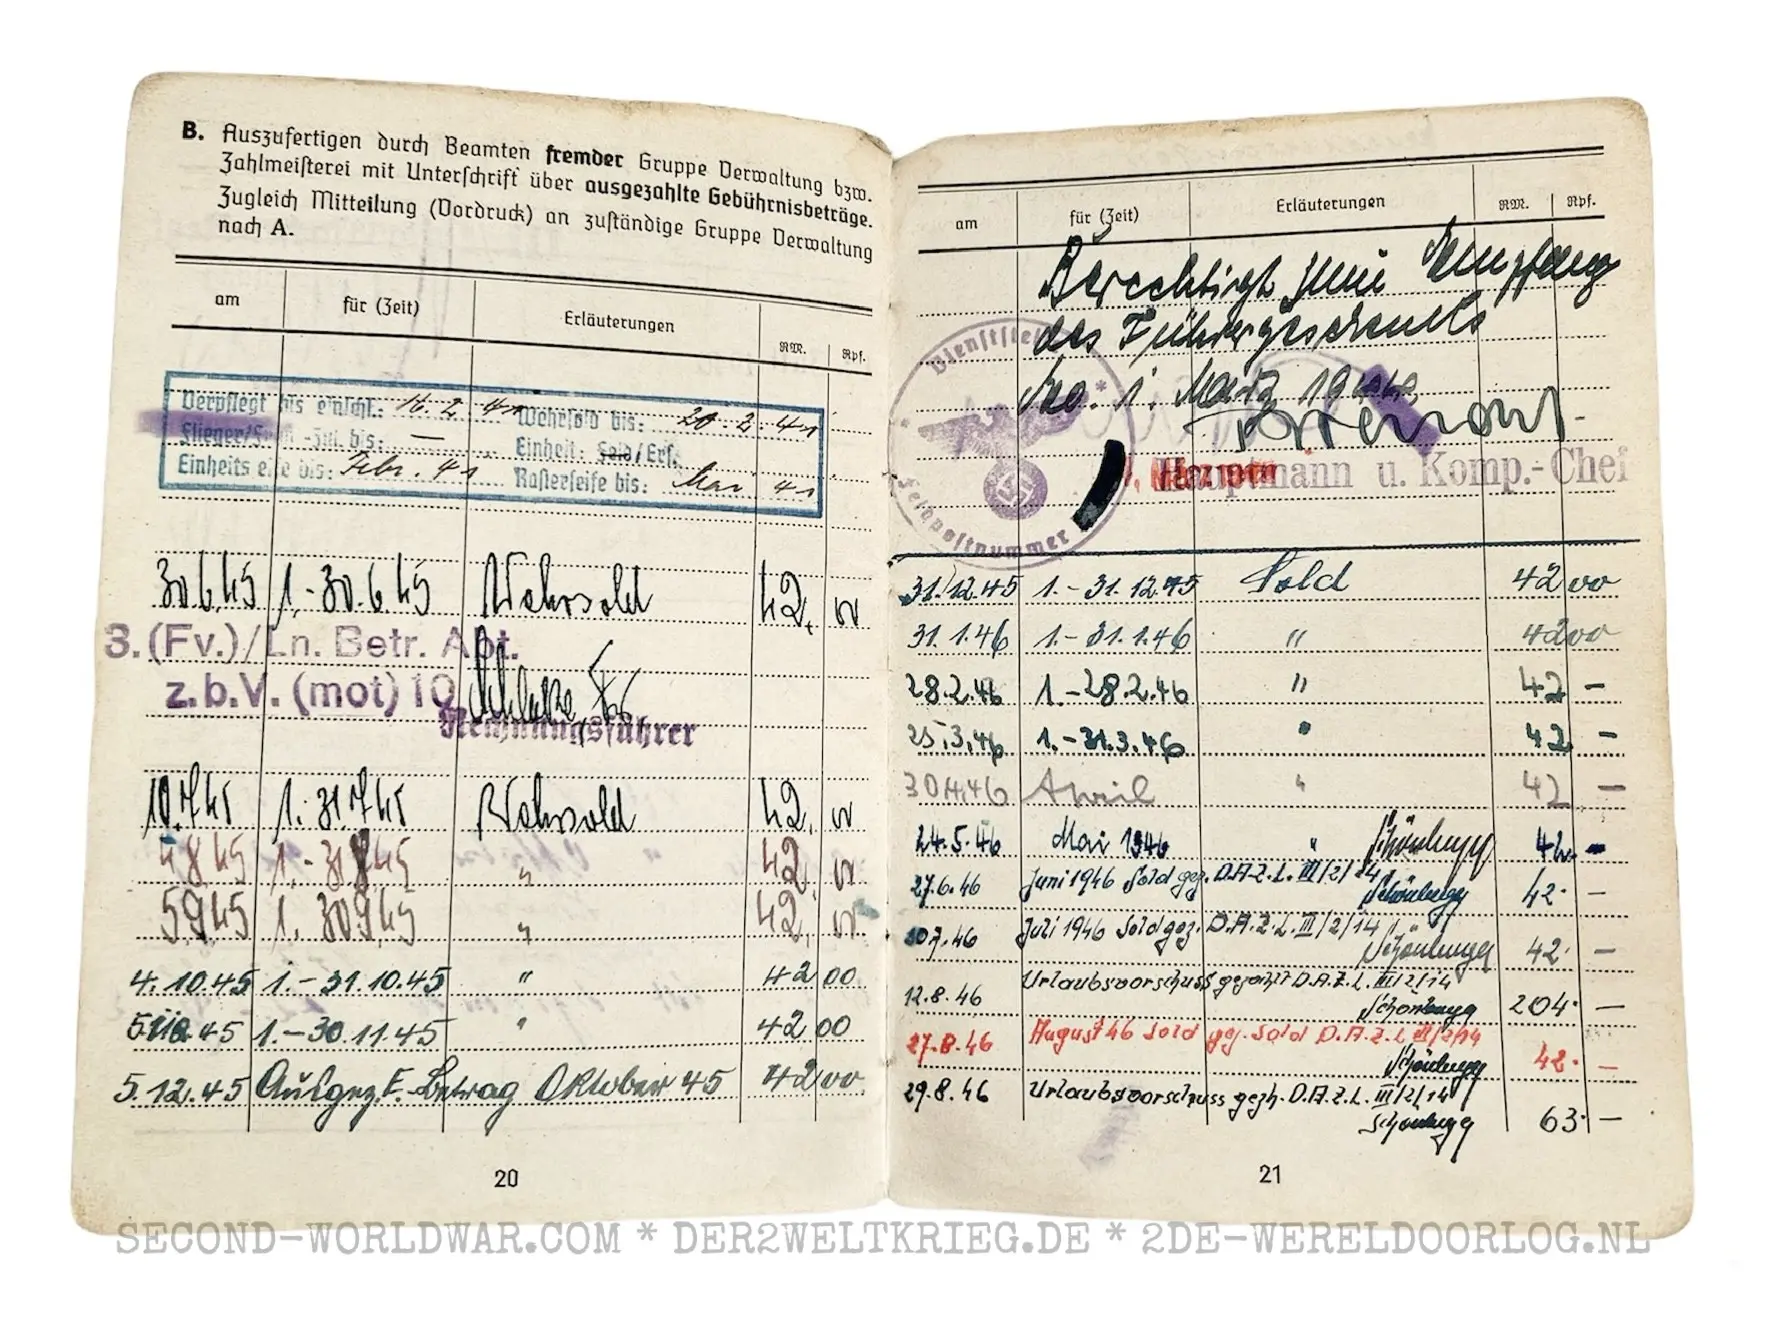 B. Auszufertigen durch Beamten fremder Gruppe Verwaltung bzw.
Zahlmeisterei mit Unterschrift über ausgezahlte Gebührnisbeträge.
Zugleich Mitteilung (Vordruck) an zuständige Gruppe Verwaltung
nach A.
am für (Zeit) Erläuterungen RM. Rpf.
Verpflegt bis einschl.: 16. 2. 41 Wehrsold bis: 20. 2. 41
bis: — Einheit: Sold/Ers.
Einheits e fe bis: Febr. 41 Rasierseife bis: Mai 41
30.6.45 1.-30.6.45 Wehrsold 42,
3. (Fv.)/Ln. Betr. Abt.
z.b.V. (mot) 10
Rechnungsführer
10.7.45 1.-31.7.45 Wehrsold 42,
4.8.45 1.-31.8.45 " 42,
5.9.45 1. 30.9.45 " 42,
4.10.45 1.-31.10.45 " 42 00
45 1.-30.11.45 " 42 00
5.12.45 Ausgez. F. Betrag Oktober 45 42 00
20
am für (Zeit) Erläuterungen RM. Rpf.
Berechtigt zum Empfang
des Führergeschenks
1. März
Dienststelle
Feldpostnummer
Hauptmann u. Komp.-Chef
31.12.45 1.-31.12.45 Sold 42 00
31.1.46 1.-31.1.46 " 42 00
28.2.46 1.-28.2.46 " 42 —
25.3.46 1.-31.3.46 " 42 —
30.4.46 April " 42 —
24.5.46 Mai 1946 " 42. —
27.6.46 Juni 1946 Sold gez. D.A.Z.L. III/2/14
42. —
30.7.46 Juli 1946 Sold gez. D.A.Z.L. III/2/14
42. —
12.8.46 Urlaubsvorschuss gezahlt D.A.Z.L. III/2/14
204. —
27.8.46 August 46 Sold gez. Sold D.A.Z.L. III/2/14
42. —
29.8.46 Urlaubsvorschuss gezh. D.A.Z.L. III/2/14
63. —
21
SECOND-WORLDWAR.COM * DER2WELTKRIEG.DE * 2DE-WERELDOORLOG.NL